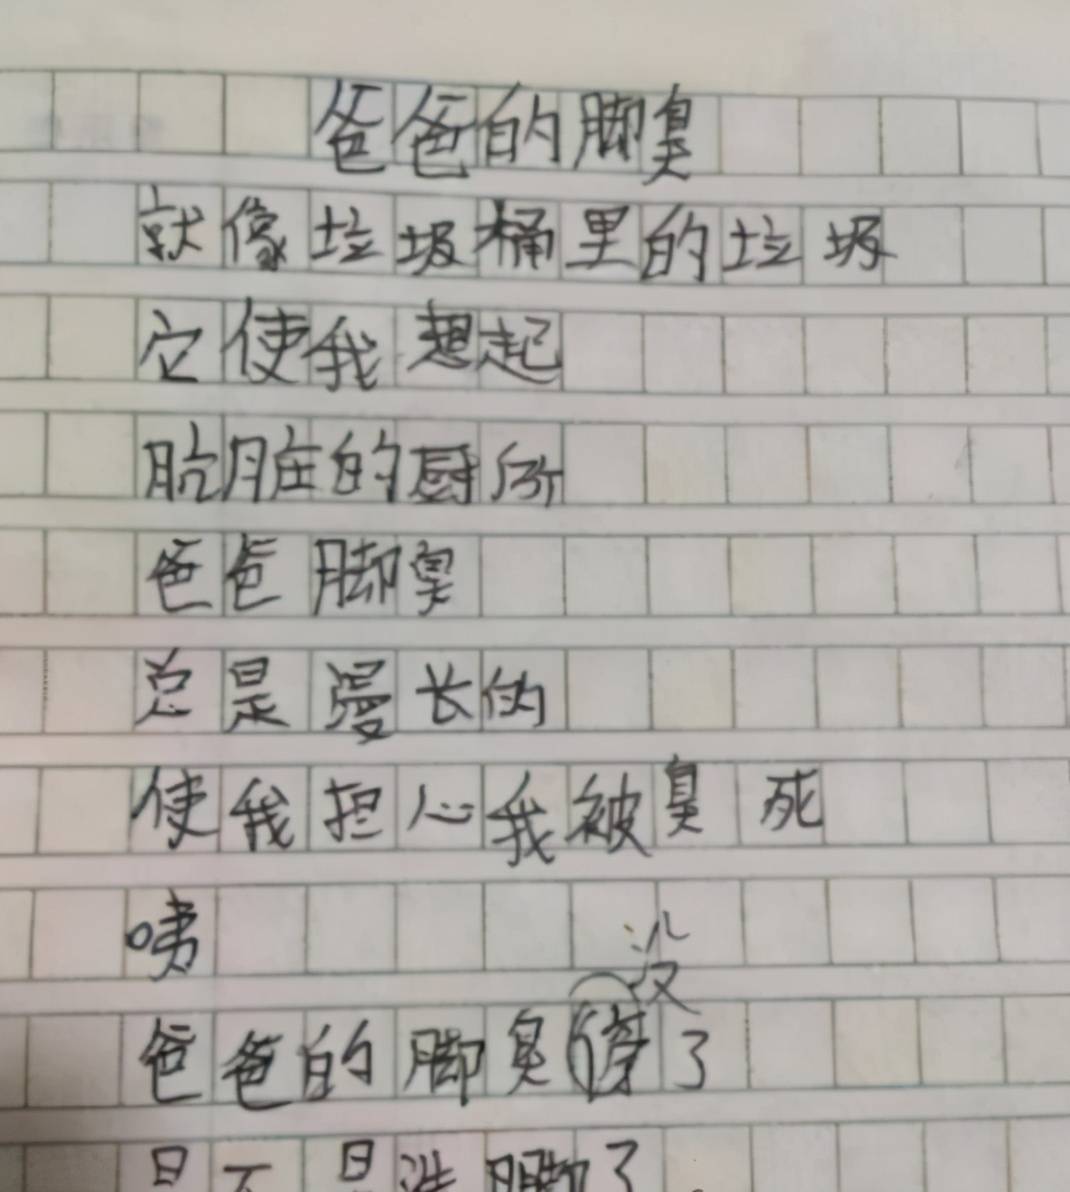 爸爸的脚臭
就像垃圾桶里的垃圾
它使我想起
肮脏的厨所
爸爸脚臭
总是漫长的
使我担心我被臭死
咦
没
爸爸的脚臭停了
是不是洗脚了